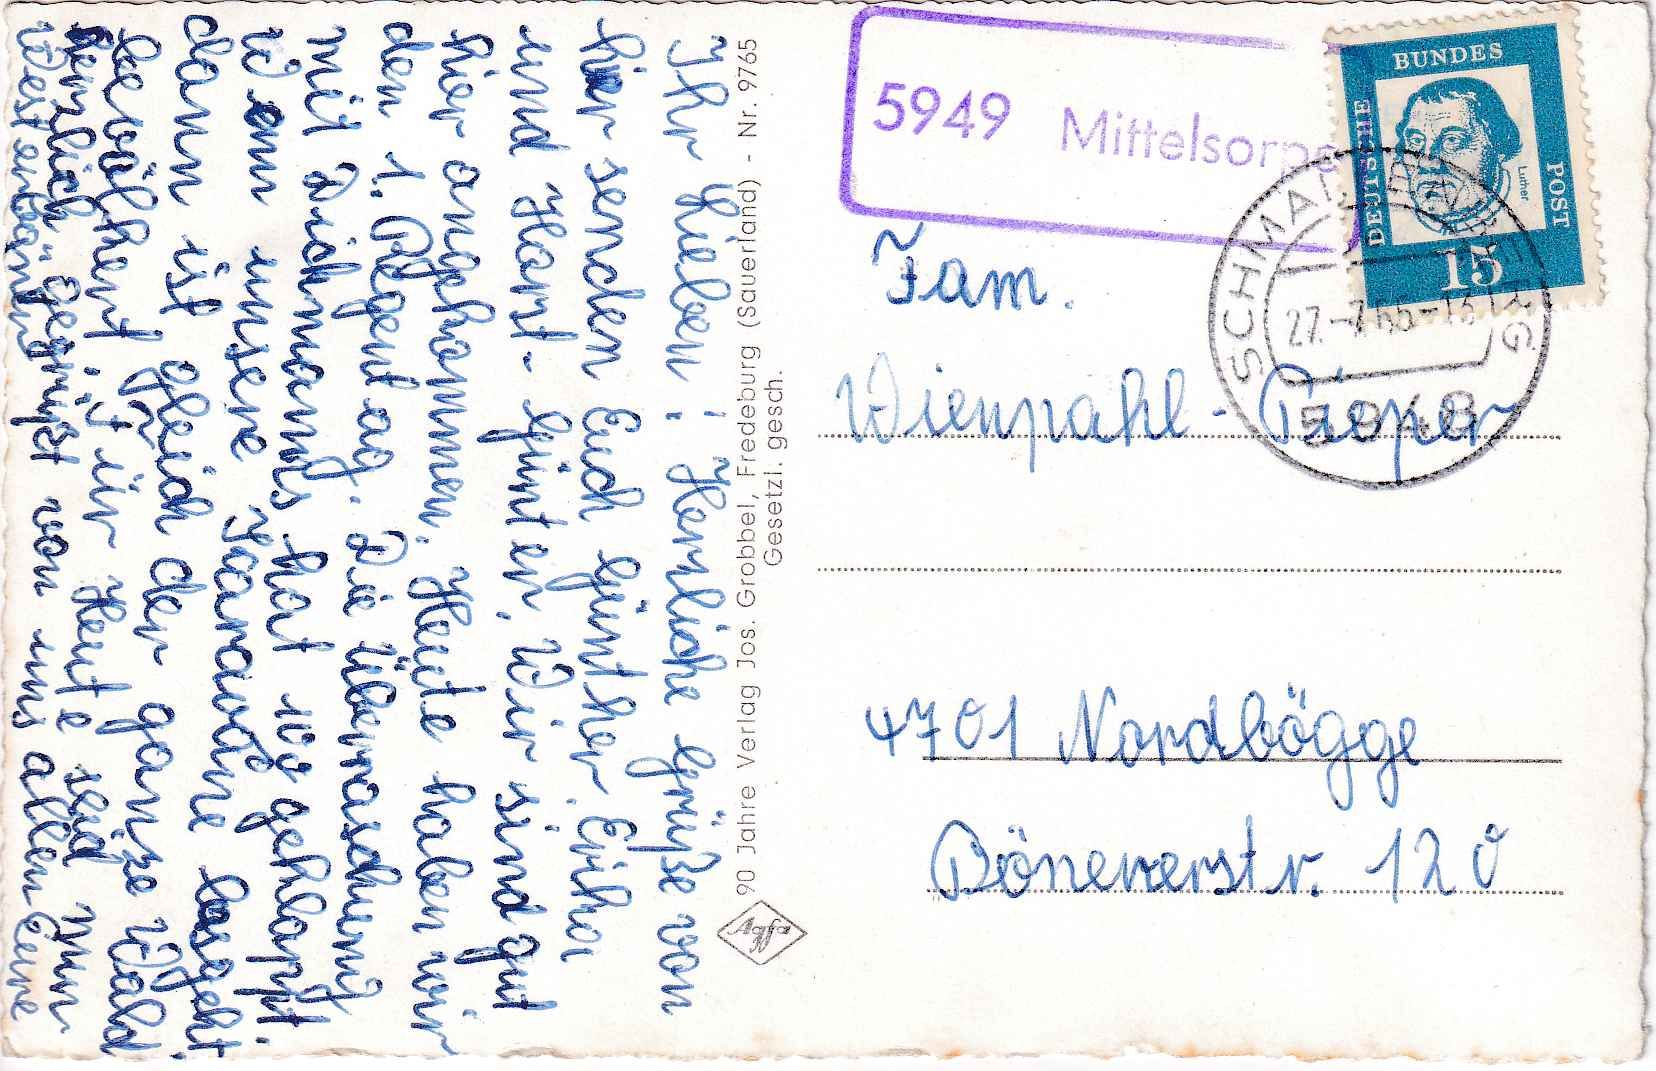 Ihr Lieben! Herzliche Grüße von
hier senden Euch Günther, Erika
und Horst-Günter. Wir sind gut
hier angekommen. Heute haben wir
den 1. Regentag. Die Überraschung
mit Dickmanns hat 100% geklappt.
Wenn unsere Karavane losgeht
dann ist gleich der ganze Wald
bevölkert. Für Heute seid nun
herzlich gegrüßt von uns allen Eure
Westenbäumer
90 Jahre Verlag Jos. Grobbel, Fredeburg (Sauerland) - Nr. 9765
Gesetzl. gesch.
Agfa
5949 Mittelsorpe
DEUTSCHE
BUNDES
POST
Luther
15
SCHMALLENBERG
27.-7.65-16
5948
Fam.
Wienpahl - Pieper
4701 Nordbögge
Bönenerstr. 120